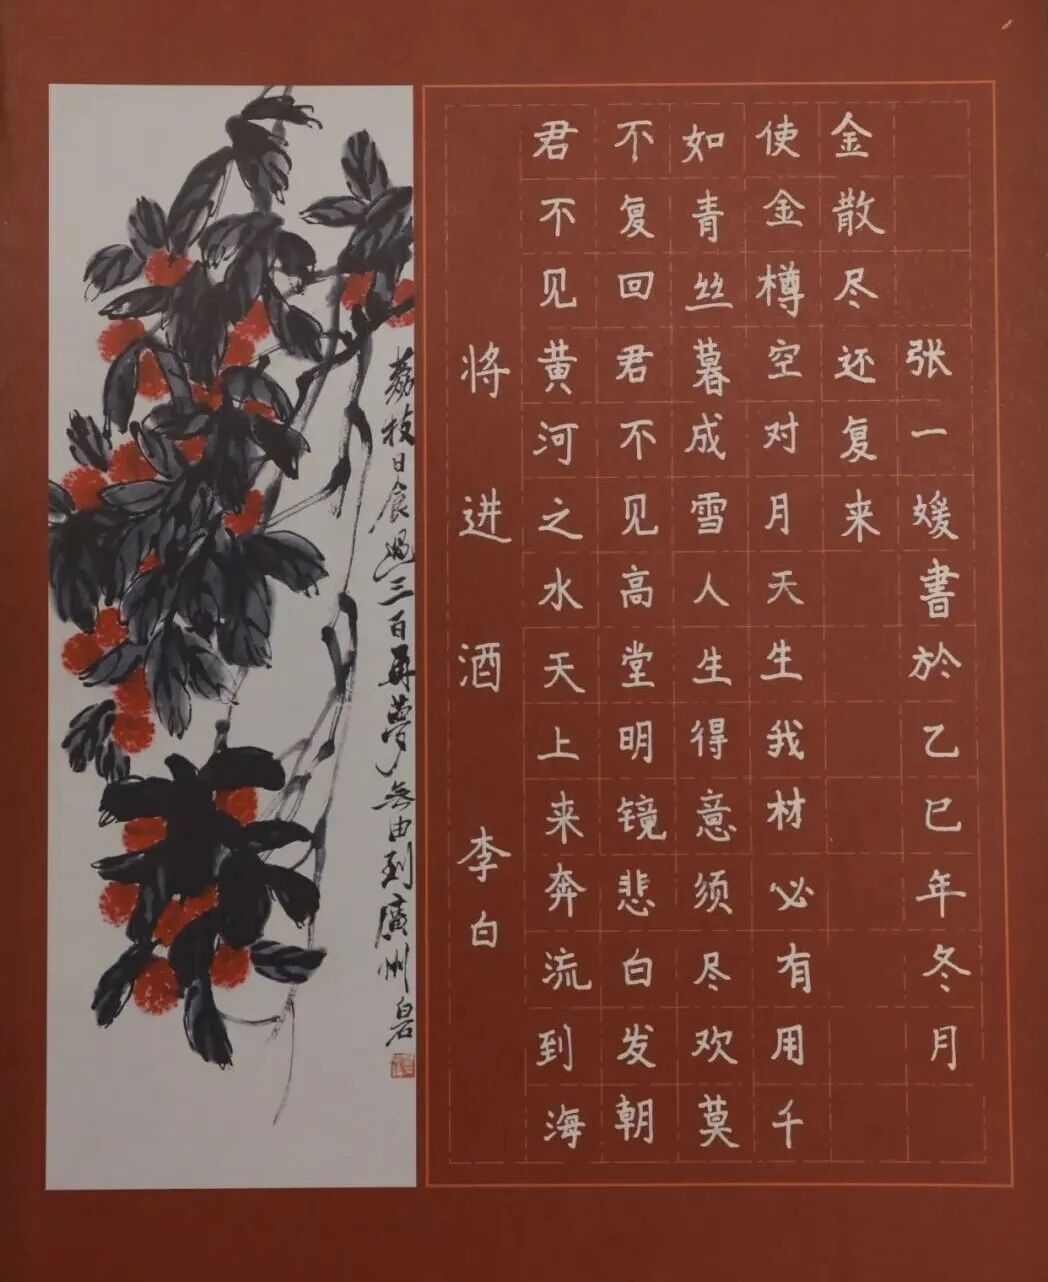 荔枝日食過三百再夢無由到廣州白石
将进酒 李白
君不见黄河之水天上来奔流到海
不复回君不见高堂明镜悲白发朝
如青丝暮成雪人生得意须尽欢莫
使金樽空对月天生我材必有用千
金散尽还复来
张一媛書於乙巳年冬月